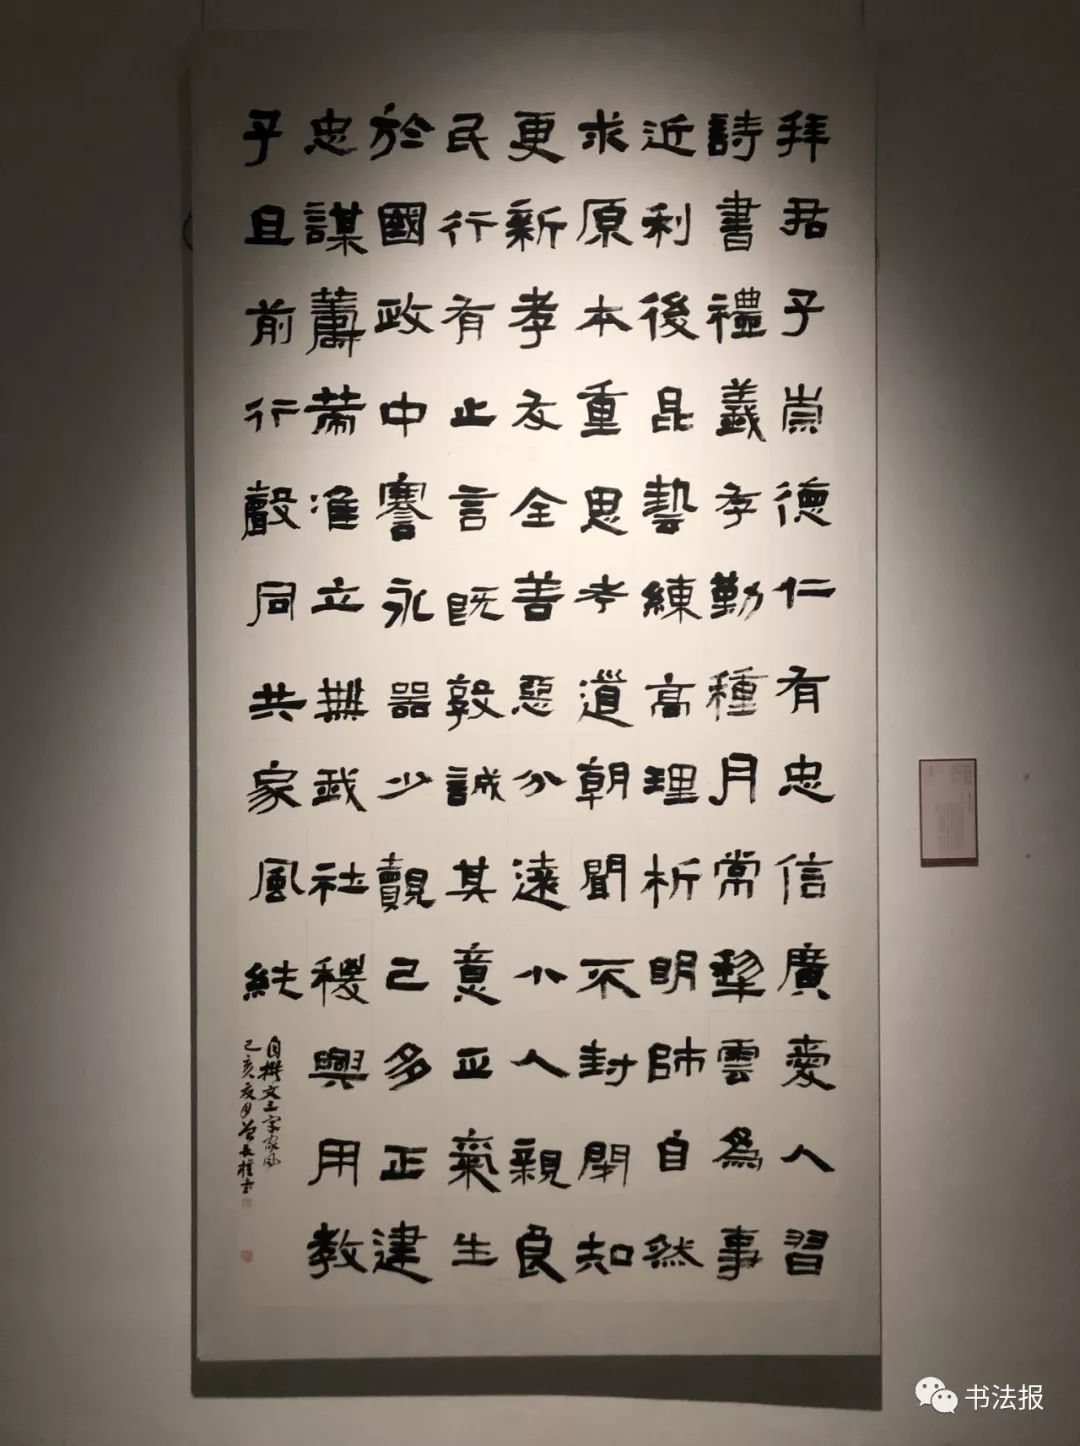 拜君子崇德仁有忠信廣愛人習
詩書禮義孝勤種月常犁雲為事
近利後昆藝練高理析明師自然
求原本重思孝道朝聞不封閉知
更新孝友全善惡分遠小人親良
民行有止言既敦誠其意正氣生
於國政中謇永器少覿己多正建
忠謀蕭蕭准立無武社稷興用教
子且前行聲同共家風純
自撰文三字家風
己亥夏月曾長桂書
书法报